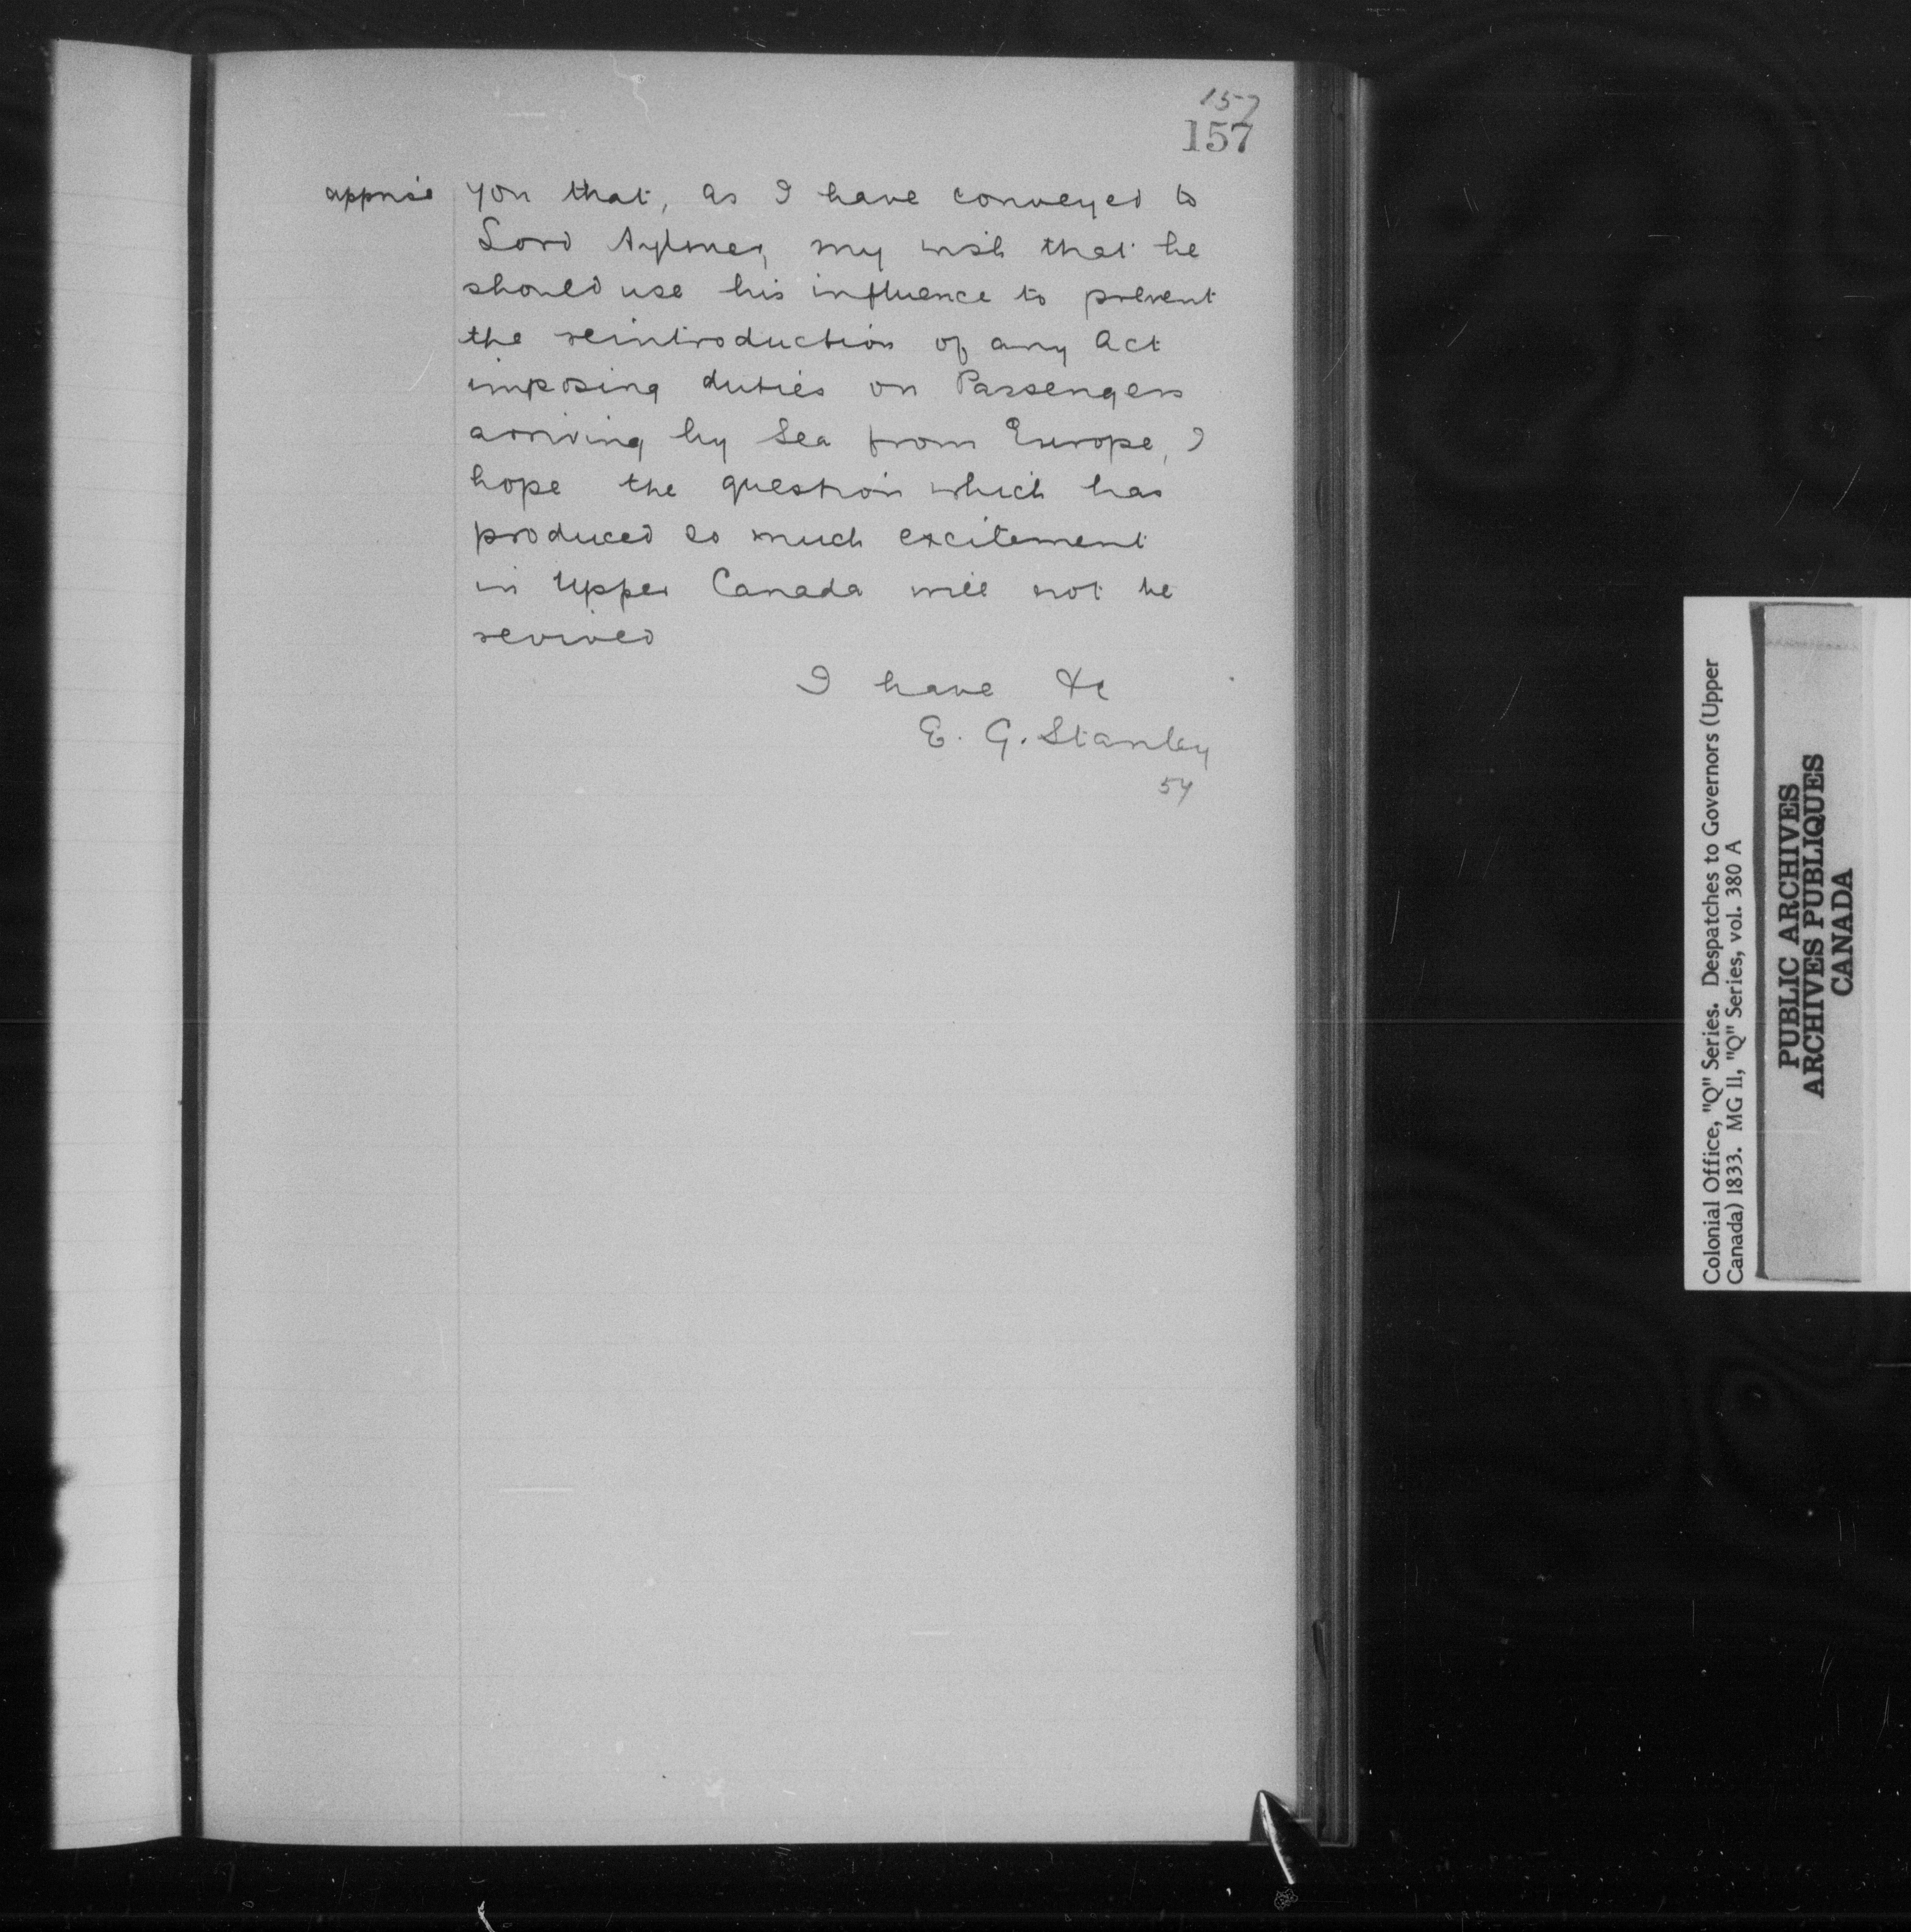 157
157
apprise you that, as I have conveyed to
Lord Aylmer, my wish that he
should use his influence to prevent
the reintroduction of any Act
imposing duties on Passengers
arriving by Sea from Europe, I
hope the question which has
produced so much excitement
in Upper Canada will not be
revived
I have &c
E. G. Stanley
54
Colonial Office, "Q" Series. Despatches to Governors (Upper
Canada) 1833. MG 11, "Q" Series, vol. 380 A
PUBLIC ARCHIVES
ARCHIVES PUBLIQUES
CANADA